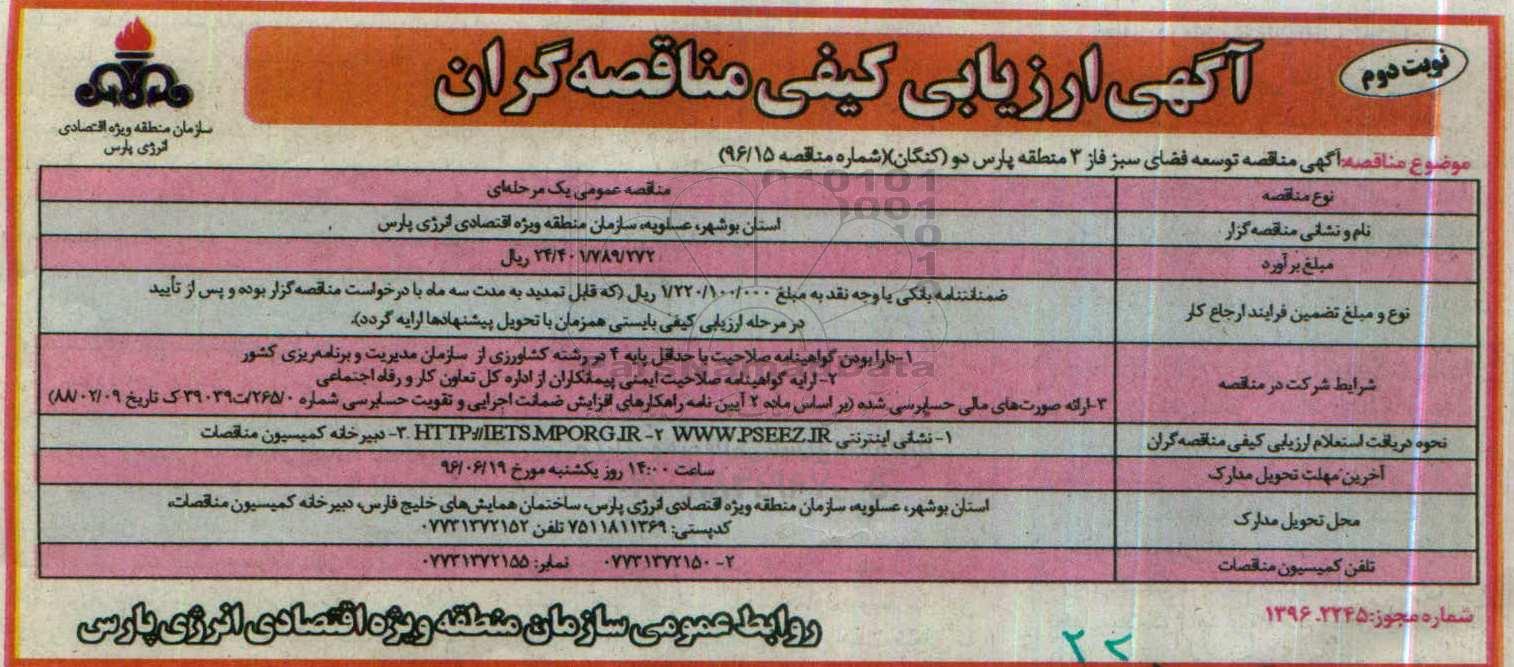 نوبت دوم
آگهی ارزیابی کیفی مناقصه‌گران
سازمان منطقه ویژه اقتصادی
انرژی پارس
موضوع مناقصه:آگهی مناقصه توسعه فضای سبز فاز ۳ منطقه پارس دو (کنگان)(شماره مناقصه ۹۶/۱۵)
نوع مناقصه مناقصه عمومی یک مرحله‌ای
نام و نشانی مناقصه‌گزار استان بوشهر، عسلویه، سازمان منطقه ویژه اقتصادی انرژی پارس
مبلغ برآورد ۲۴/۴۰۱/۷۸۹/۲۷۲ ریال
نوع و مبلغ تضمین فرایند ارجاع کار ضمانتنامه بانکی یا وجه نقد به مبلغ ۱/۲۲۰/۱۰۰/۰۰۰ ریال (که قابل تمدید به مدت سه ماه با درخواست مناقصه‌گزار بوده و پس از تأیید
در مرحله ارزیابی کیفی بایستی همزمان با تحویل پیشنهادها ارایه گردد).
شرایط شرکت در مناقصه ۱-دارا بودن گواهینامه صلاحیت با حداقل پایه ۴ در رشته کشاورزی از سازمان مدیریت و برنامه‌ریزی کشور
۲- ارایه گواهینامه صلاحیت ایمنی پیمانکاران از اداره کل تعاون کار و رفاه اجتماعی
۳-ارائه صورت‌های مالی حسابرسی شده (بر اساس ماده ۲ آیین نامه راهکارهای افزایش ضمانت اجرایی و تقویت حسابرسی شماره ۲۶۵/۰/ت۳۹۰۳۹ ک تاریخ ۸۸/۰۲/۰۹)
نحوه دریافت استعلام ارزیابی کیفی مناقصه‌گران ۱- نشانی اینترنتی WWW.PSEEZ.IR ۲- HTTP://IETS.MPORG.IR ۳- دبیرخانه کمیسیون مناقصات
آخرین مهلت تحویل مدارک ساعت ۱۴:۰۰ روز یکشنبه مورخ ۹۶/۰۶/۱۹
محل تحویل مدارک استان بوشهر، عسلویه، سازمان منطقه ویژه اقتصادی انرژی پارس، ساختمان همایش‌های خلیج فارس، دبیرخانه کمیسیون مناقصات،
کدپستی: ۷۵۱۱۸۱۱۳۶۹ تلفن ۰۷۷۳۱۳۷۲۱۵۲
تلفن کمیسیون مناقصات ۲- ۰۷۷۳۱۳۷۲۱۵۰ نمابر: ۰۷۷۳۱۳۷۲۱۵۵
شماره مجوز:۲۲۴۵-۱۳۹۶
روابط عمومی سازمان منطقه ویژه اقتصادی انرژی پارس
۲۲